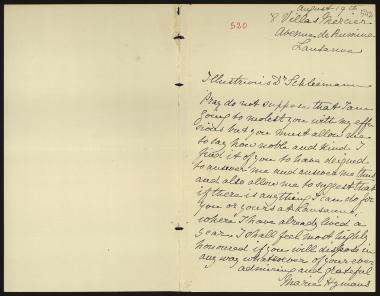 520
August 19th
8 Villas Mercier
Avenue de Rumine
Lausanne
Illustrious Dr Schliemann
Pray do not suppose that I am
going to molest you with my effu
sions but you must allow me
to say how noble and kind I
find it of you to have deigned
to answer me and answer me thus
and also allow me to suggest that
if there is anything I can do for
you or yours at Lausanne,
where I have already lived a
year I shall feel most highly
honoured if you will dispose in
any way whatsoever of your ever
admiring and grateful
Marie Hymans